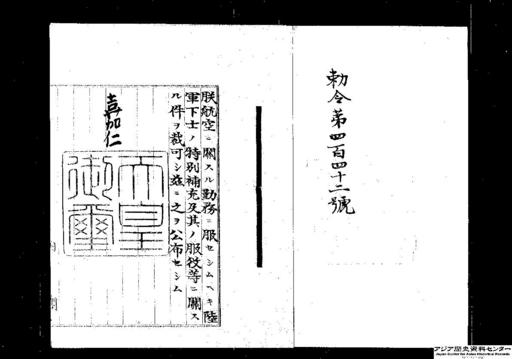 勅令第四百四十二號
朕航空ニ關スル勤務ニ服セシムヘキ陸
軍下士ノ特別補充及其ノ服役等ニ關ス
ル件ヲ裁可シ茲ニ之ヲ公布セシム
嘉仁
天皇
御璽
アジア歴史資料センター
Japan Center for Asian Historical Records